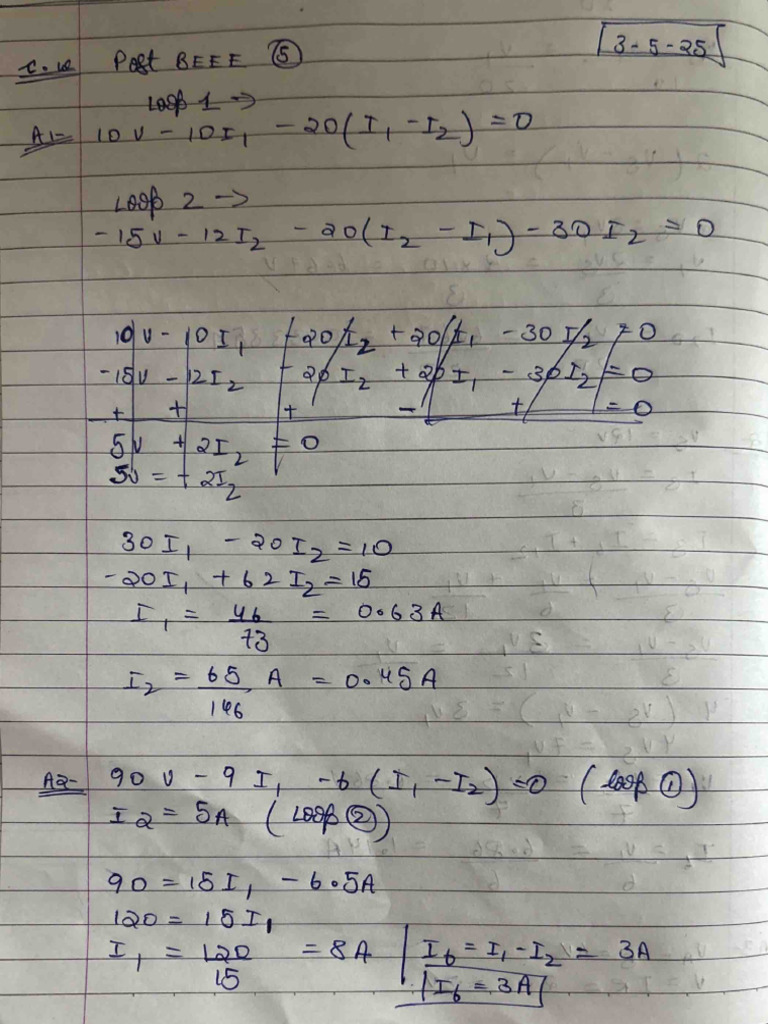 C.W Post BEEE ⑤ 3-5-25
Loop 1 →
A1- 10V - 10I₁ - 20(I₁ - I₂) = 0
Loop 2 →
-15V - 12I₂ - 20(I₂ - I₁) - 30I₂ = 0
10V - 10I₁ - 20I₂ + 20I₁ - 30I₂ = 0
-15V - 12I₂ - 20I₂ + 20I₁ - 30I₂ = 0
+ + + - + = 0
5V + 2I₂ = 0
5V = - 2I₂
30I₁ - 20I₂ = 10
-20I₁ + 62I₂ = 15
I₁ = 46/73 = 0.63A
I₂ = 65/146 A = 0.45A
A2- 90V - 9I₁ - 6(I₁ - I₂) = 0 (loop ①)
I2 = 5A (Loop ②)
90 = 15I₁ - 6.5A
120 = 15I₁
I₁ = 120/15 = 8A | I₆ = I₁ - I₂ = 3A
I₆ = 3A